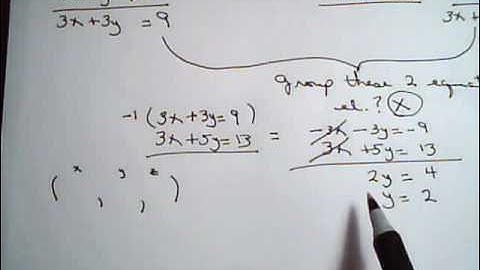 3x+3y = 9
3x+
group these 2 equat
el. ? x
-1(3x+3y=9)
3x+5y=13
=
-3x-3y=-9
3x+5y=13
2y=4
y=2
x y z
( , , )